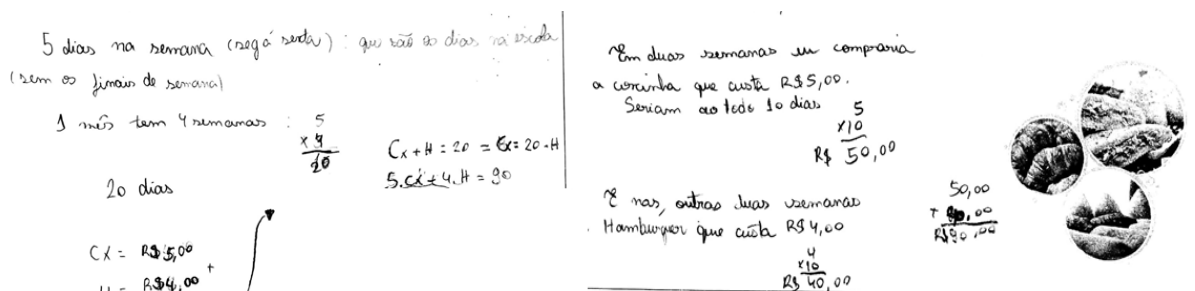 5 dias na semana (seg á sexta) : que são os dias na escola
(sem os finais de semana)
1 mês tem 4 semanas :
5
x 4
20
Cx + H = 20 = Cx = 20 - H
5.Cx + 4.H = 90
20 dias
CX = R$ 5,00
+
H = R$4,00
Em duas semanas eu compraria
a coxinha que custa R$5,00.
Seriam ao todo 10 dias
5
x10
R$ 50,00
E nas, outras duas semanas
Hamburguer que custa R$ 4,00
4
x10
R$ 40,00
50,00
+ 40,00
R$90,00